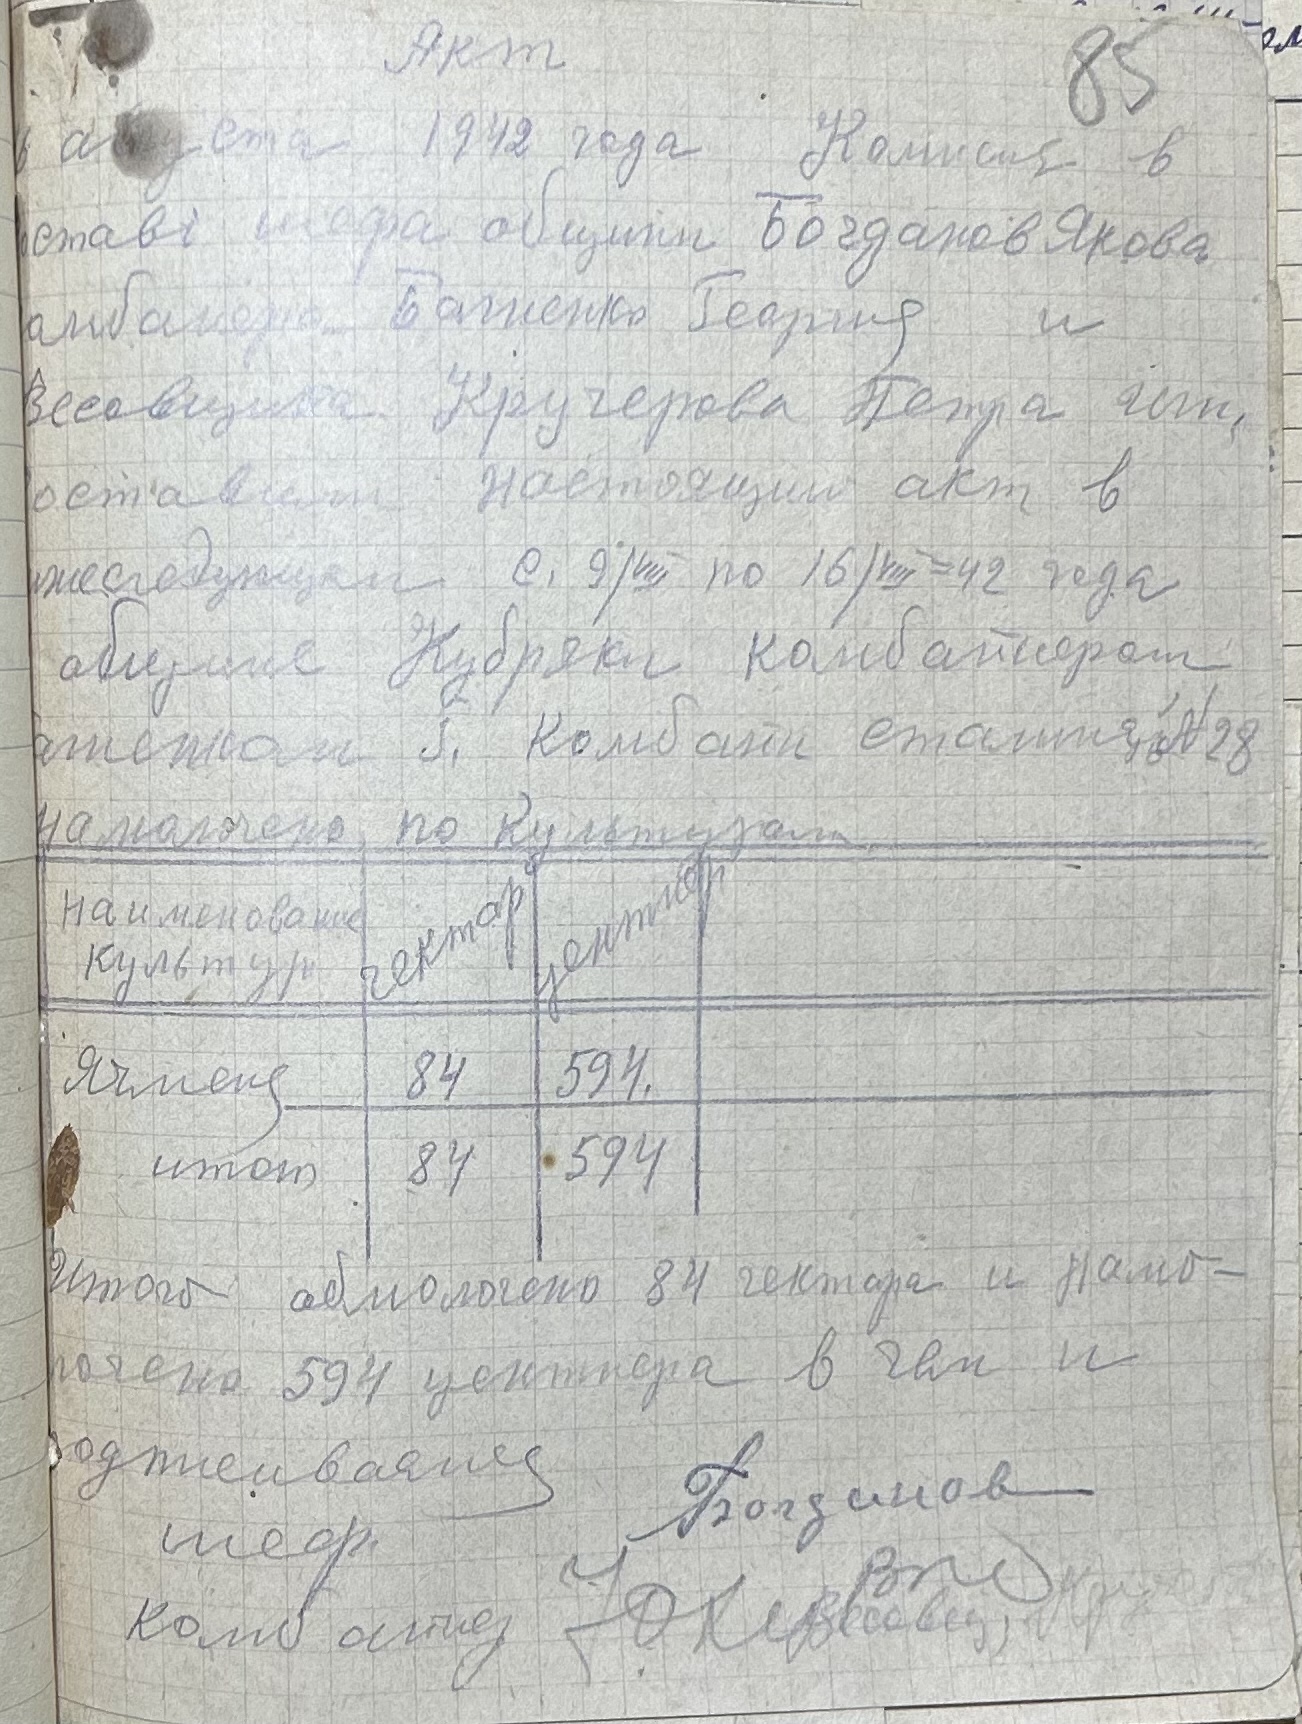 Акт
85
августа 1942 года Комисия в
ставі шефа общини Богданов Якова
омбайнера Баженко Георгия и
Весовщика Кручерова Петра
оставили настоящий акт в
жеследующем с. 9/VIII по 16/VIII=42 года
общине Кубряки комбайнером
аженком Г. Комбайн сталинец №28
намолочено по культурам
наименование культур гектар центнер
Ячменя 84 594.
итог 84 594
Итого обмолочено 84 гектара и намо-
лочено 594 центнера в чем и
шеф Богданов
Комбайнер
Весовщ,